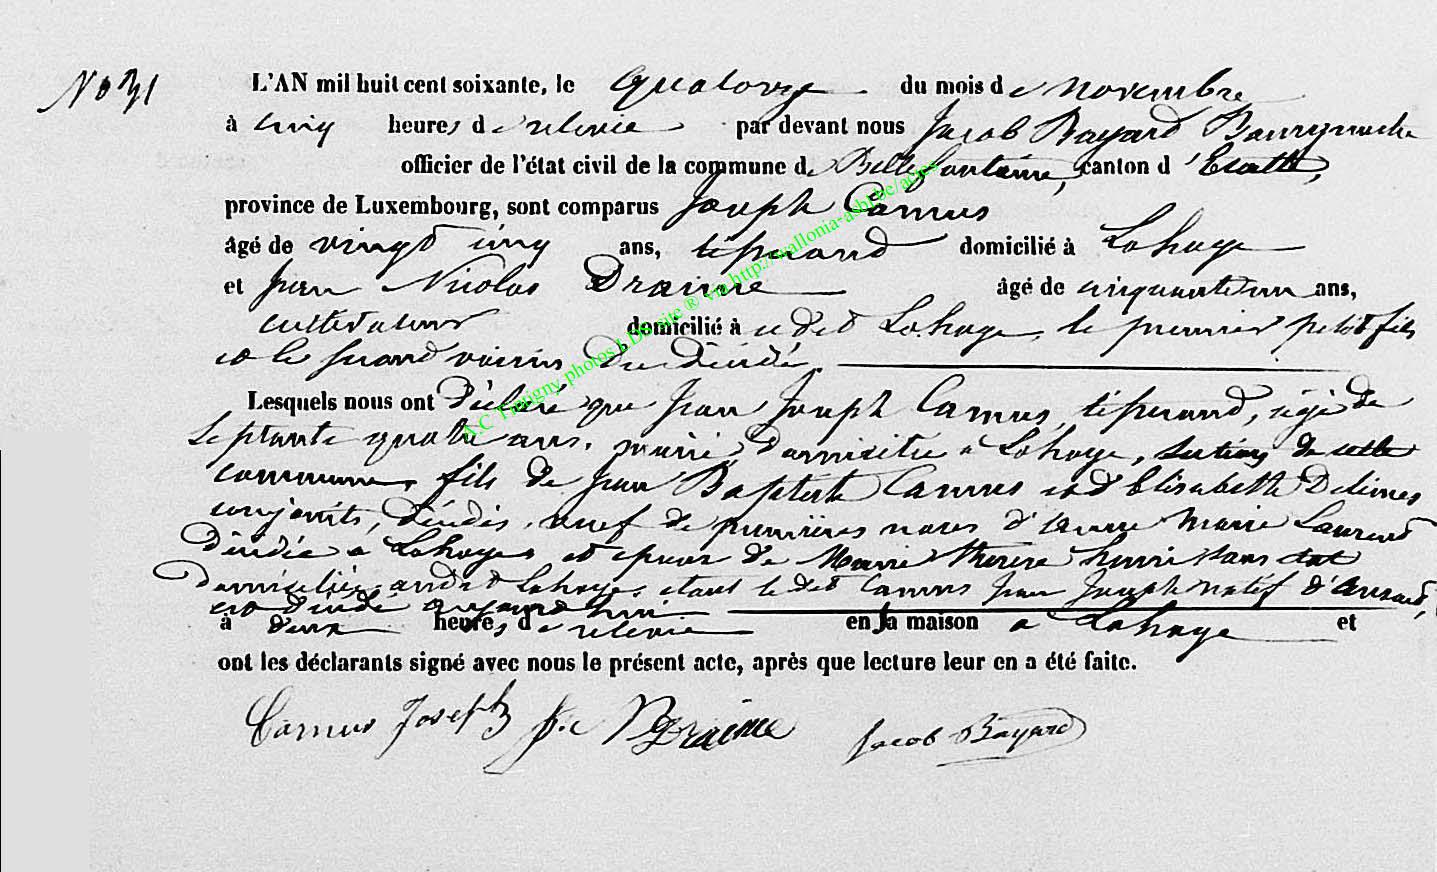 No 31
L'AN mil huit cent soixante, le quatorze du mois de novembre
à cinq heures de relevée par devant nous Jacob Bayard Bourgmestre
officier de l'état civil de la commune de Bellefontaine, canton d'Etalle,
province de Luxembourg, sont comparus Joseph Camus
âgé de vingt cinq ans, tisserand domicilié à Lahage
et Jean Nicolas Draime âgé de cinquante un ans,
cultivateur domicilié à udit Lahage, le premier petit fils
et le second voisin du décédé.
Lesquels nous ont déclaré que Jean Joseph Camus, tisserand, âgé de
septante quatre ans, marié, domicilié à Lahage, section de cette
commune, fils de Jean Baptiste Camus et d'Elisabette
conjoints, décédés, veuf de premières noces d'Anne Marie Laurent
décédée à Lahage et époux de Marie Therese Henri sans état
domiciliée audit Lahage, étant le dit Camus Jean Joseph natif d'
est décédé aujourd'hui
à deux heures de relevée en sa maison à Lahage et
ont les déclarants signé avec nous le présent acte, après que lecture leur en a été faite.
Camus Joseph J.N Draime Jacob Bayard
A.C Tintigny photos J.D site ® via http://wallonia-asbl.be/actes